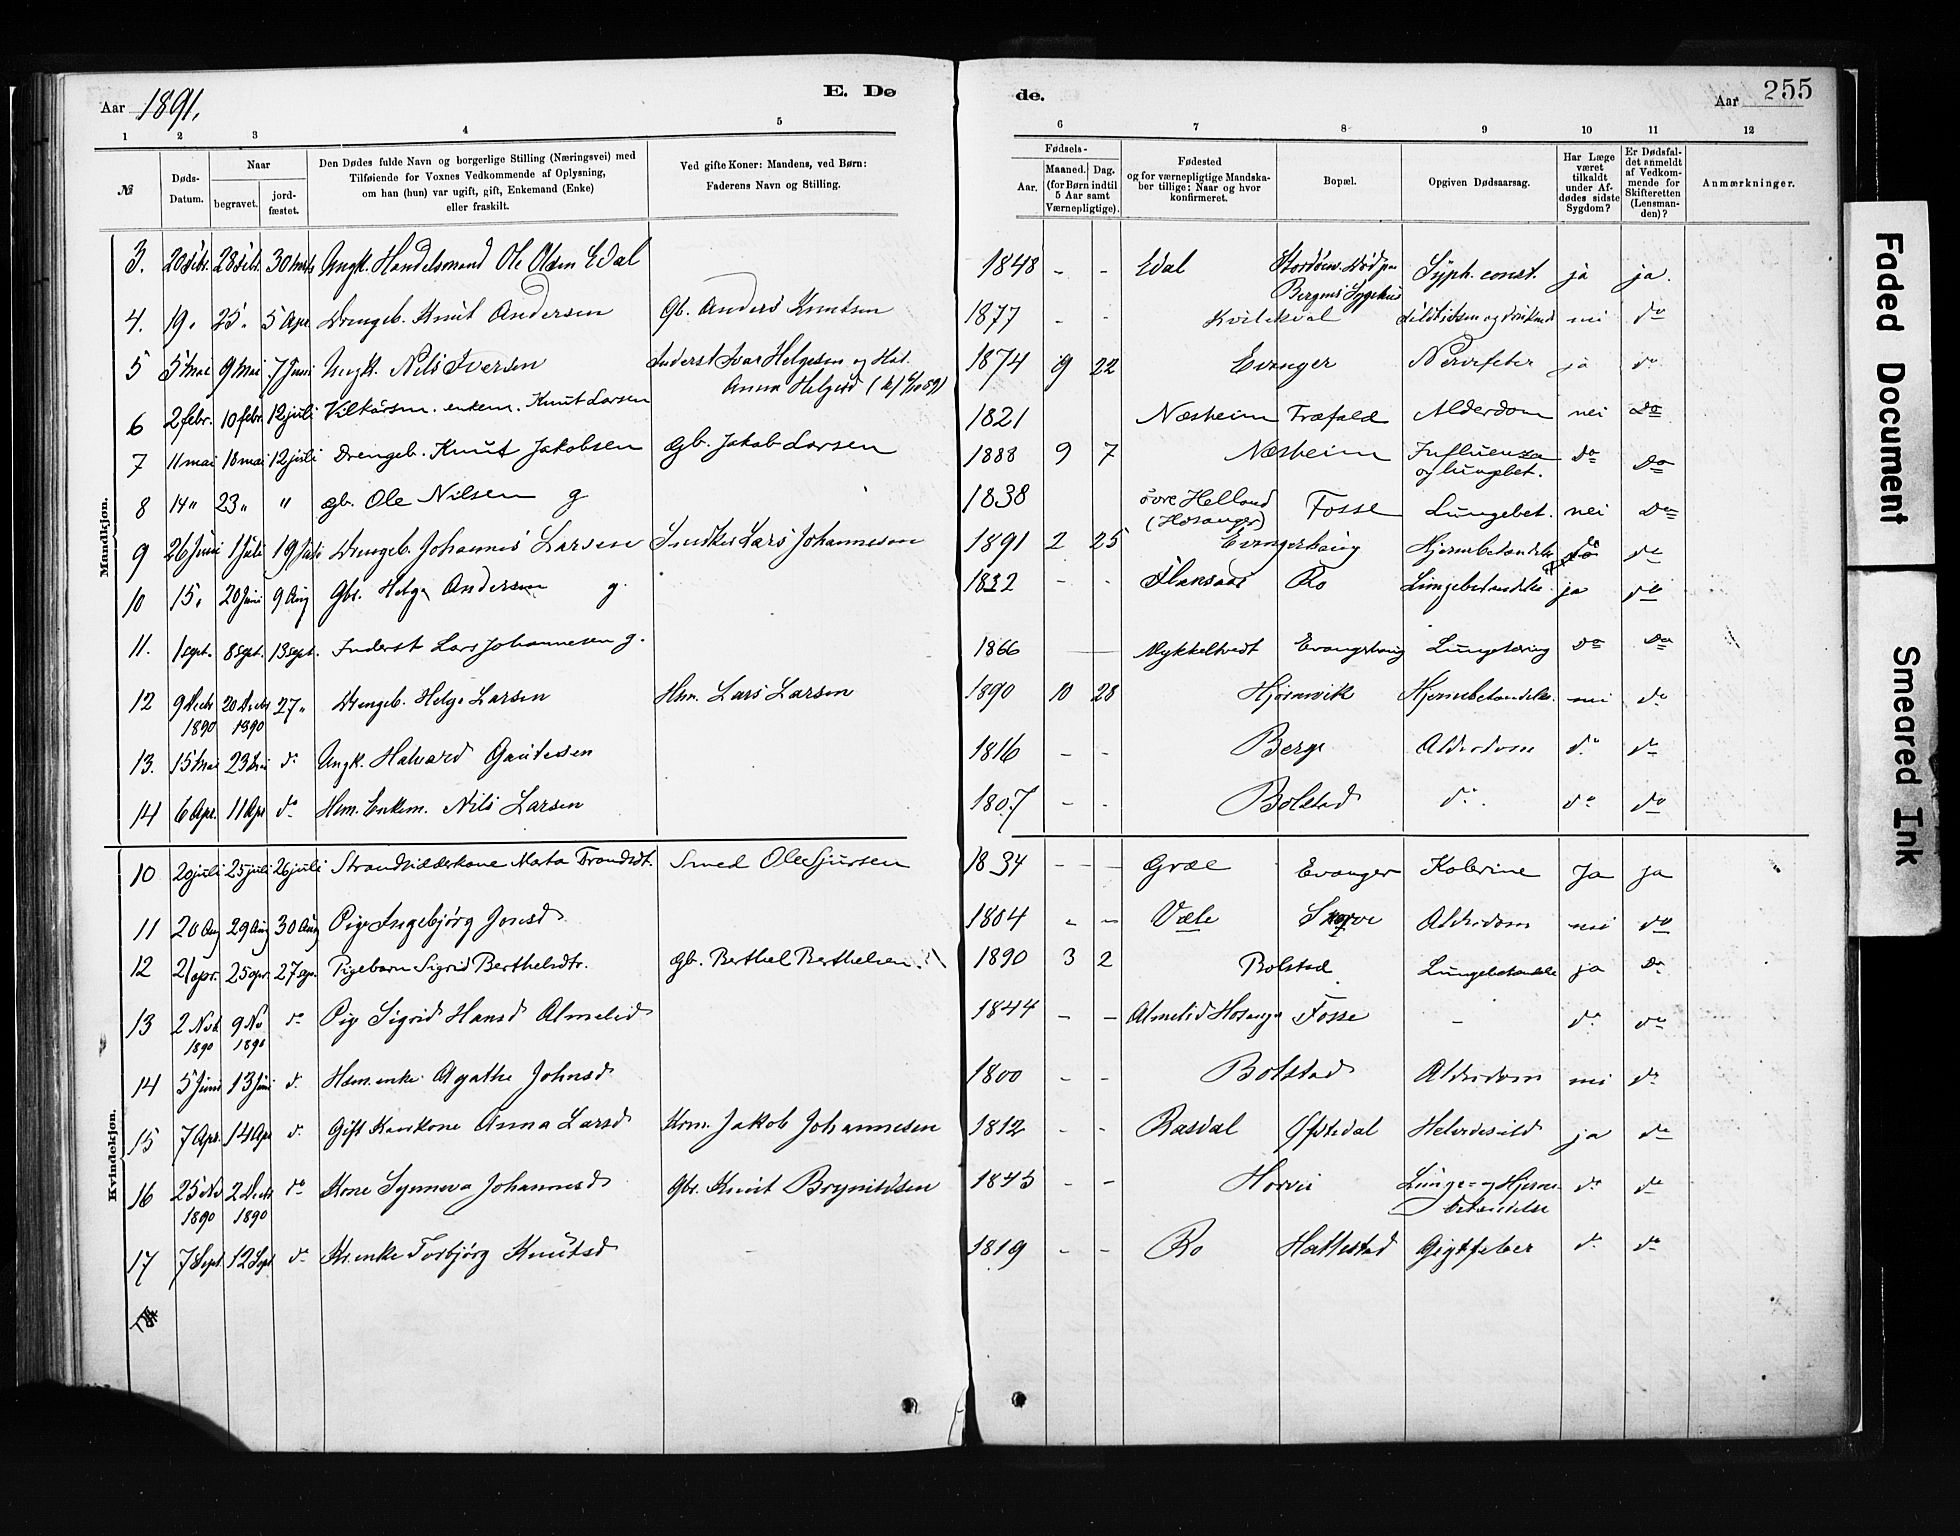 Aar 1891.
E. Dø
de.
Aar
255
1 2 3 4 5 6 7 8 9 10 11 12
№
Døds-Datum.
Naar
begravet.
jord-fæstet.
Den Dødes fulde Navn og borgerlige Stilling (Næringsvei) med
Tilføiende for Voxnes Vedkommende af Oplysning,
om han (hun) var ugift, gift, Enkemand (Enke)
eller fraskilt.
Ved gifte Koner: Mandens, ved Børn:
Faderens Navn og Stilling.
Fødsels-
Aar.
Maaned. Dag.
(for Børn indtil
5 Aar samt
Værnepligtige).
Fødested
og for værnepligtige Mandska-
ber tillige: Naar og hvor
konfirmeret.
Bopæl.
Opgiven Dødsaarsag.
Har Læge
været
tilkaldt
under Af-
dødes sidste
Sygdom?
Er Dødsfal-
det anmeldt
af Vedkom-
mende for
Skifteretten
(Lensman-
den)?
Anmærkninger.
Mandkjøn.
3. 20 Febr. 28 Febr. 30 Ungk. Handelsmand Ole Olsen Edal 1848 - - Edal Bergens Sygehus Syph. const. ja ja.
4. 19 " 25 " 5 Apr Drengeb. Knut Andersen Gb. Anders Knutsen 1877 - - nei do
5 5 Mai 9 Mai 7 Juni Ungk. Nils Iversen Inderst Ivar Helgesen og Anna Helgesd 1874 9 22 Evanger Nervefeber ja do
6 2 febr. 10 febr. 12 juli enkem. Knut Larsen 1821 Næsheim Træfald Alderdom nei do
7 11 mai 18 mai 12 juli Drengeb. Knut Jakobsen gb. Jakob Larsen 1888 9 7 Næsheim Influenza og lungebet. do do
8 14 " 23 " " gb. Ole Nilsen g 1838 øvre Helland (Hosanger) Fosse Lungebet. nei do
9 26 Juni 1 Juli 19 Juli Drengeb. Johannes Larsen Lars Johannessen 1891 2 25 Hjernebetændelse do do
10 15 " 20 Juni 9 Aug Gbr. Helge Andersen g. 1832 - - Ro Lungebetændelse ja do
11. 1 sept. 8 sept. 13 sept. Inderst Lars Johannesen g. 1866 Mykkeltvedt Lungetæring do do
12 9 Decbr 1890 20 Decbr 1890 27 " Drengeb. Helge Larsen Hsm. Lars Larsen 1890 10 28 Hjørnevik Hjernebetændelse. nei do
13. 15 Mai 23 Mai do Ungk. Halvard Gautesen 1816 - - Berge Alderdom do do
14 6 Apr. 11 Apr do Hsm. Enkem. Nils Larsen 1807 - - Bolstad do do do
Kvindekjøn.
10 20 juli 25 juli 26 juli Marta Smed Ole Sjursen 1834 - - Græe Evanger Kolerine Ja ja
11 20 Aug 29 Aug 30 Aug Pige Ingebjørg Jonsd 1804 - - Væle Alderdom nei do
12 21 apr. 25 apr. 27 ap. Pigebarn Sigrid Berthelsdtr. gb. Berthel Berthelsen. 1890 3 2 Bolstad Lungebetændelse ja do
13 2 Nov 1890 9 Nov 1890 do Pige Sigrid Hansd Almelid 1844 - - Almelid Hosanger Fosse - do do
14 5 Juni 13 Juni do Hsm. enke Agathe Johnsd 1800 - - Bolstad Alderdom nei do
15 7 Apr. 14 Apr do Gift Anna Larsd Jakob Johannesen 1812 - - Rasdal Helvedesild ja do
16 25 Nov 1890 2 Decbr 1890 do Kone Synneva Johannesd Gbr. Knut Brynildsen 1845 - - Horvei Lunge- og Hjernebetændelse do do
17 7 Sept 12 Sept do enke Torbjørg Knutsd 1819 - - Ro Hattestad Gigtfeber do do
Faded Document
Smeared Ink